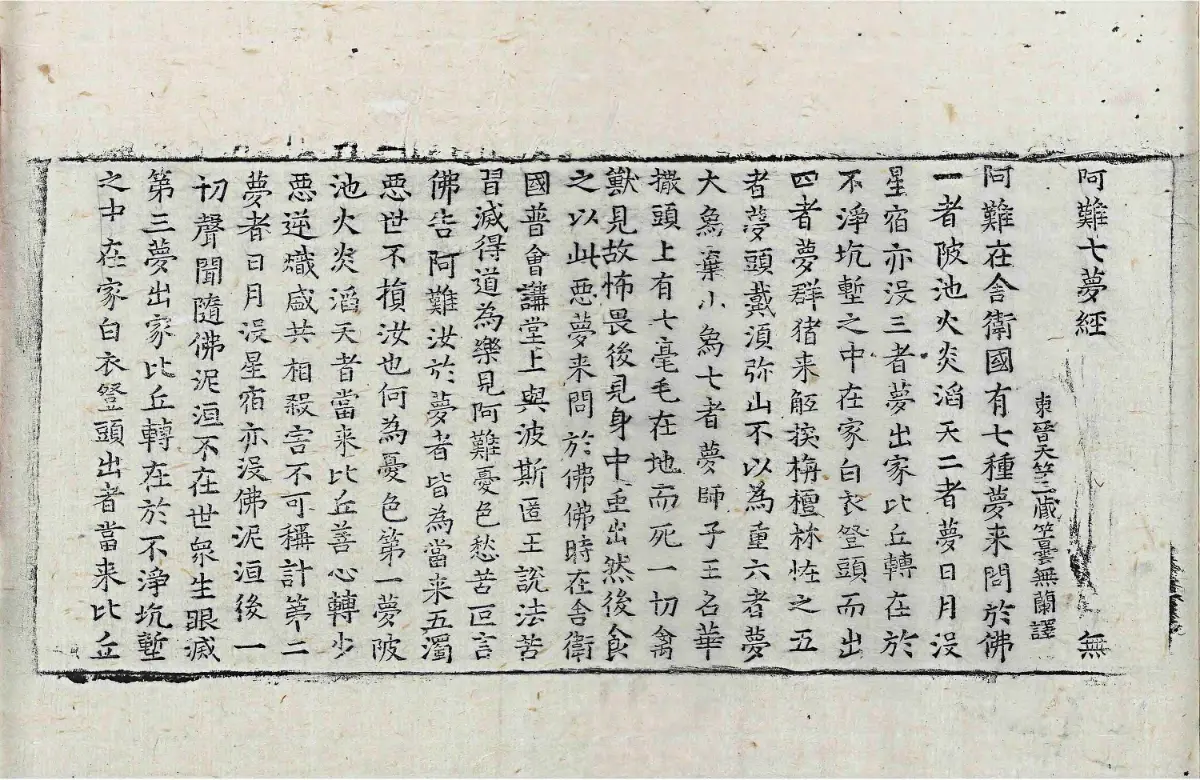 阿難七夢經　無
東晉天竺三藏竺曇無蘭譯
阿難在舍衛國有七種夢来問於佛
一者陂池火炎滔天二者夢日月没
星宿亦没三者夢出家比丘轉在於
不淨坑塹之中在家白衣登頭而出
四者夢群猪来觝揬栴檀林恠之五
者夢頭戴須弥山不以為重六者夢
大象棄小象七者夢師子王名華
撒頭上有七毫毛在地而死一切禽
獸見故怖畏後見身中虫出然後食
之以此惡夢来問於佛佛時在舍衛
國普會講堂上與波斯匿王說法苦
習滅得道為樂見阿難憂色愁苦叵言
佛告阿難汝於夢者皆為當来五濁
惡世不損汝也何為憂色第一夢陂
池火炎滔天者當来比丘善心轉少
惡逆熾盛共相殺害不可稱計第二
夢者日月没星宿亦没佛泥洹後一
切聲聞隨佛泥洹不在世眾生眼滅
第三夢出家比丘轉在於不淨坑塹
之中在家白衣登頭出者當来比丘